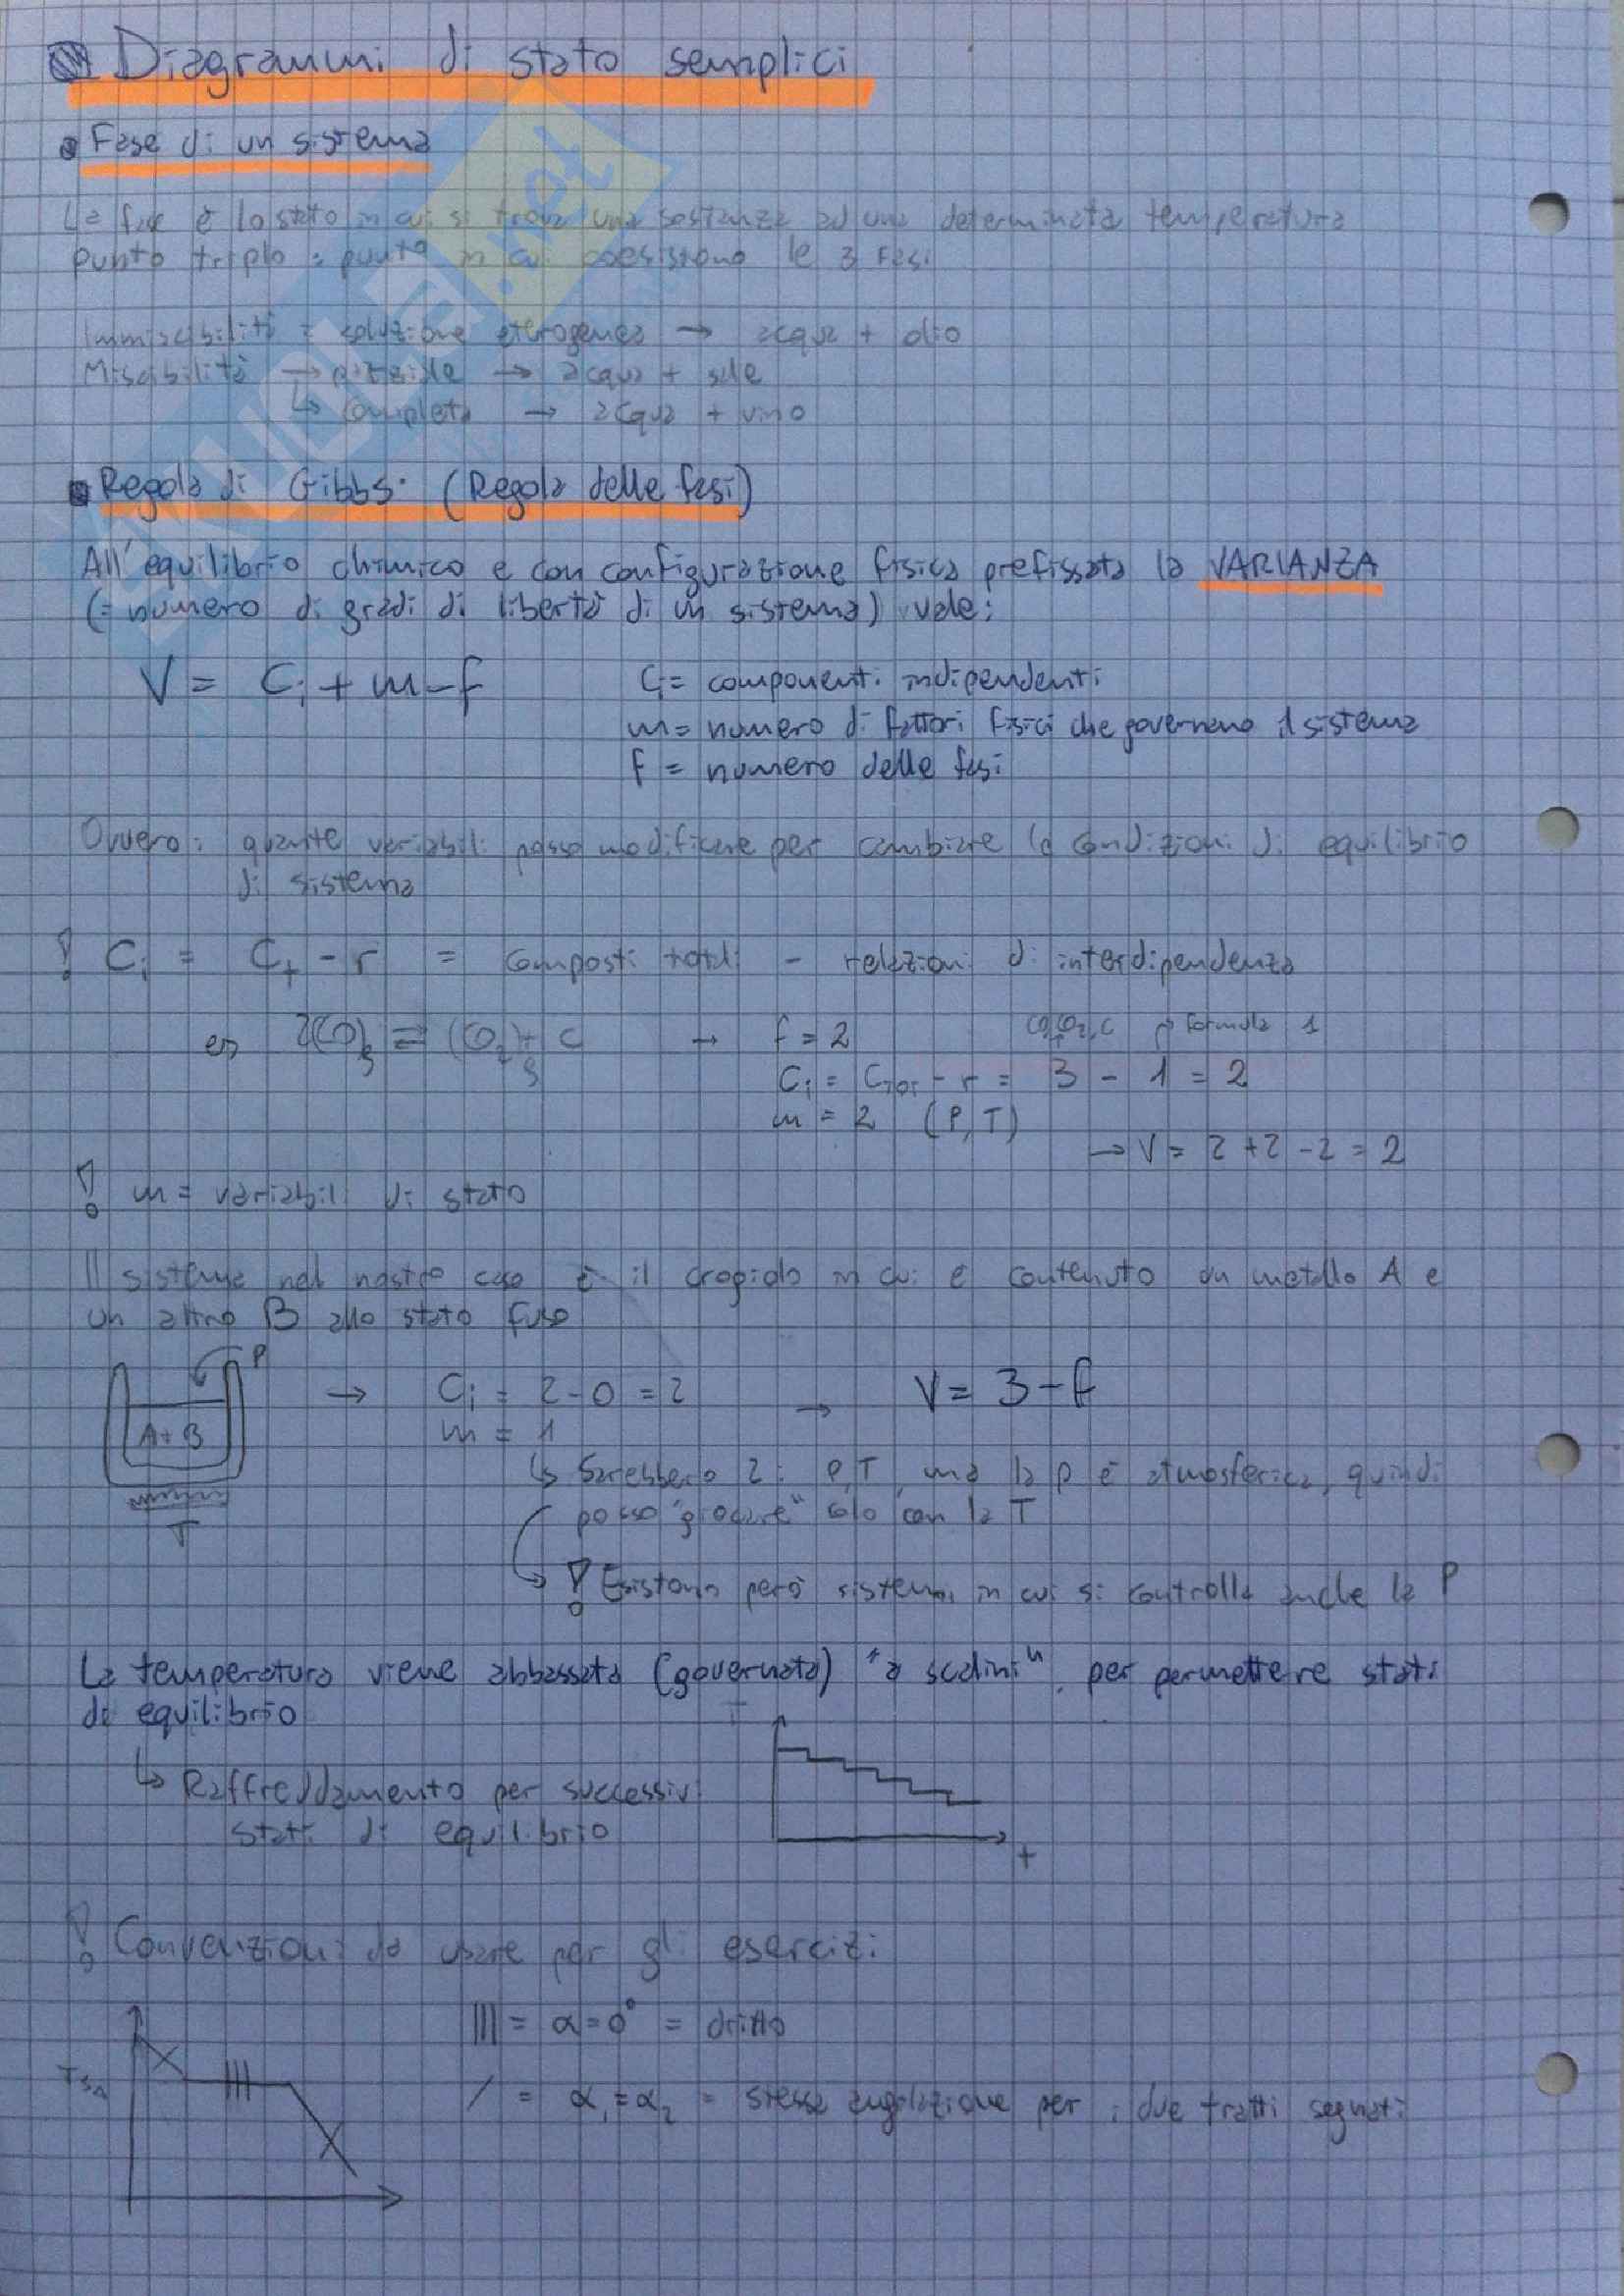 Diagrammi di stato semplici
Fase di un sistema
La fase è lo stato in cui si trova una sostanza ad una determinata temperatura
punto triplo = punto in cui coesistono le 3 fasi
Immiscibilità = soluzione eterogenea → acqua + olio
Miscibilità → parziale → acqua + sale
↳ completa → acqua + vino
Regola di Gibbs (Regola delle fasi)
All'equilibrio chimico e con configurazione fisica prefissata la VARIANZA
(= numero di gradi di libertà di un sistema) vale:
V = Ci + m - f
Ci = componenti indipendenti
m = numero di fattori fisici che governano il sistema
f = numero delle fasi
Ovvero: quante variabili posso modificare per cambiare le condizioni di equilibrio
di sistema
! Ci = Ct - r = composti totali - relazioni di interdipendenza
es 2(CO)g ⇌ (CO2)g + C → f = 2
CO, CO2, C formula 1
Ci = CTOT - r = 3 - 1 = 2
m = 2 (P, T)
→ V = 2 + 2 - 2 = 2
! m = variabili di stato
Il sistema nel nostro caso è il crogiolo in cui è contenuto un metallo A e
un altro B allo stato fuso
P
A + B
T
→ Ci = 2 - 0 = 2 → V = 3 - f
m = 1
↳ Sarebbero 2: P,T, ma la p è atmosferica, quindi
posso "giocare" solo con la T
! Esistono però sistemi in cui si controlla anche la P
La temperatura viene abbassata (governata) "a scalini", per permettere stati
di equilibrio
T
↳ Raffreddamento per successivi
stati di equilibrio
t
! Convenzioni da usare per gli esercizi:
||| = α = 0° = dritto
TSA
/ = α1 = α2 = stessa angolazione per i due tratti segnati